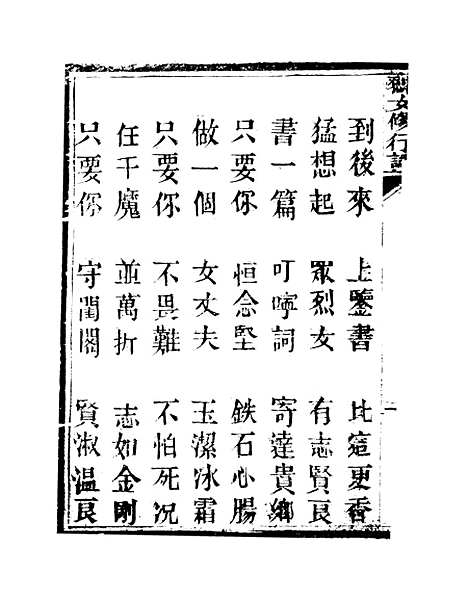 女修行
到後來 上鑒書 比這更香
猛想起 眾烈女 有志賢良
書一篇 叮嚀詞 寄達貴鄉
只要你 恒念堅 鉄石心腸
做一個 女丈夫 玉潔冰霜
只要你 不畏難 不怕死况
任千魔 並萬折 志如金剛
只要你 守閨閣 賢淑溫良